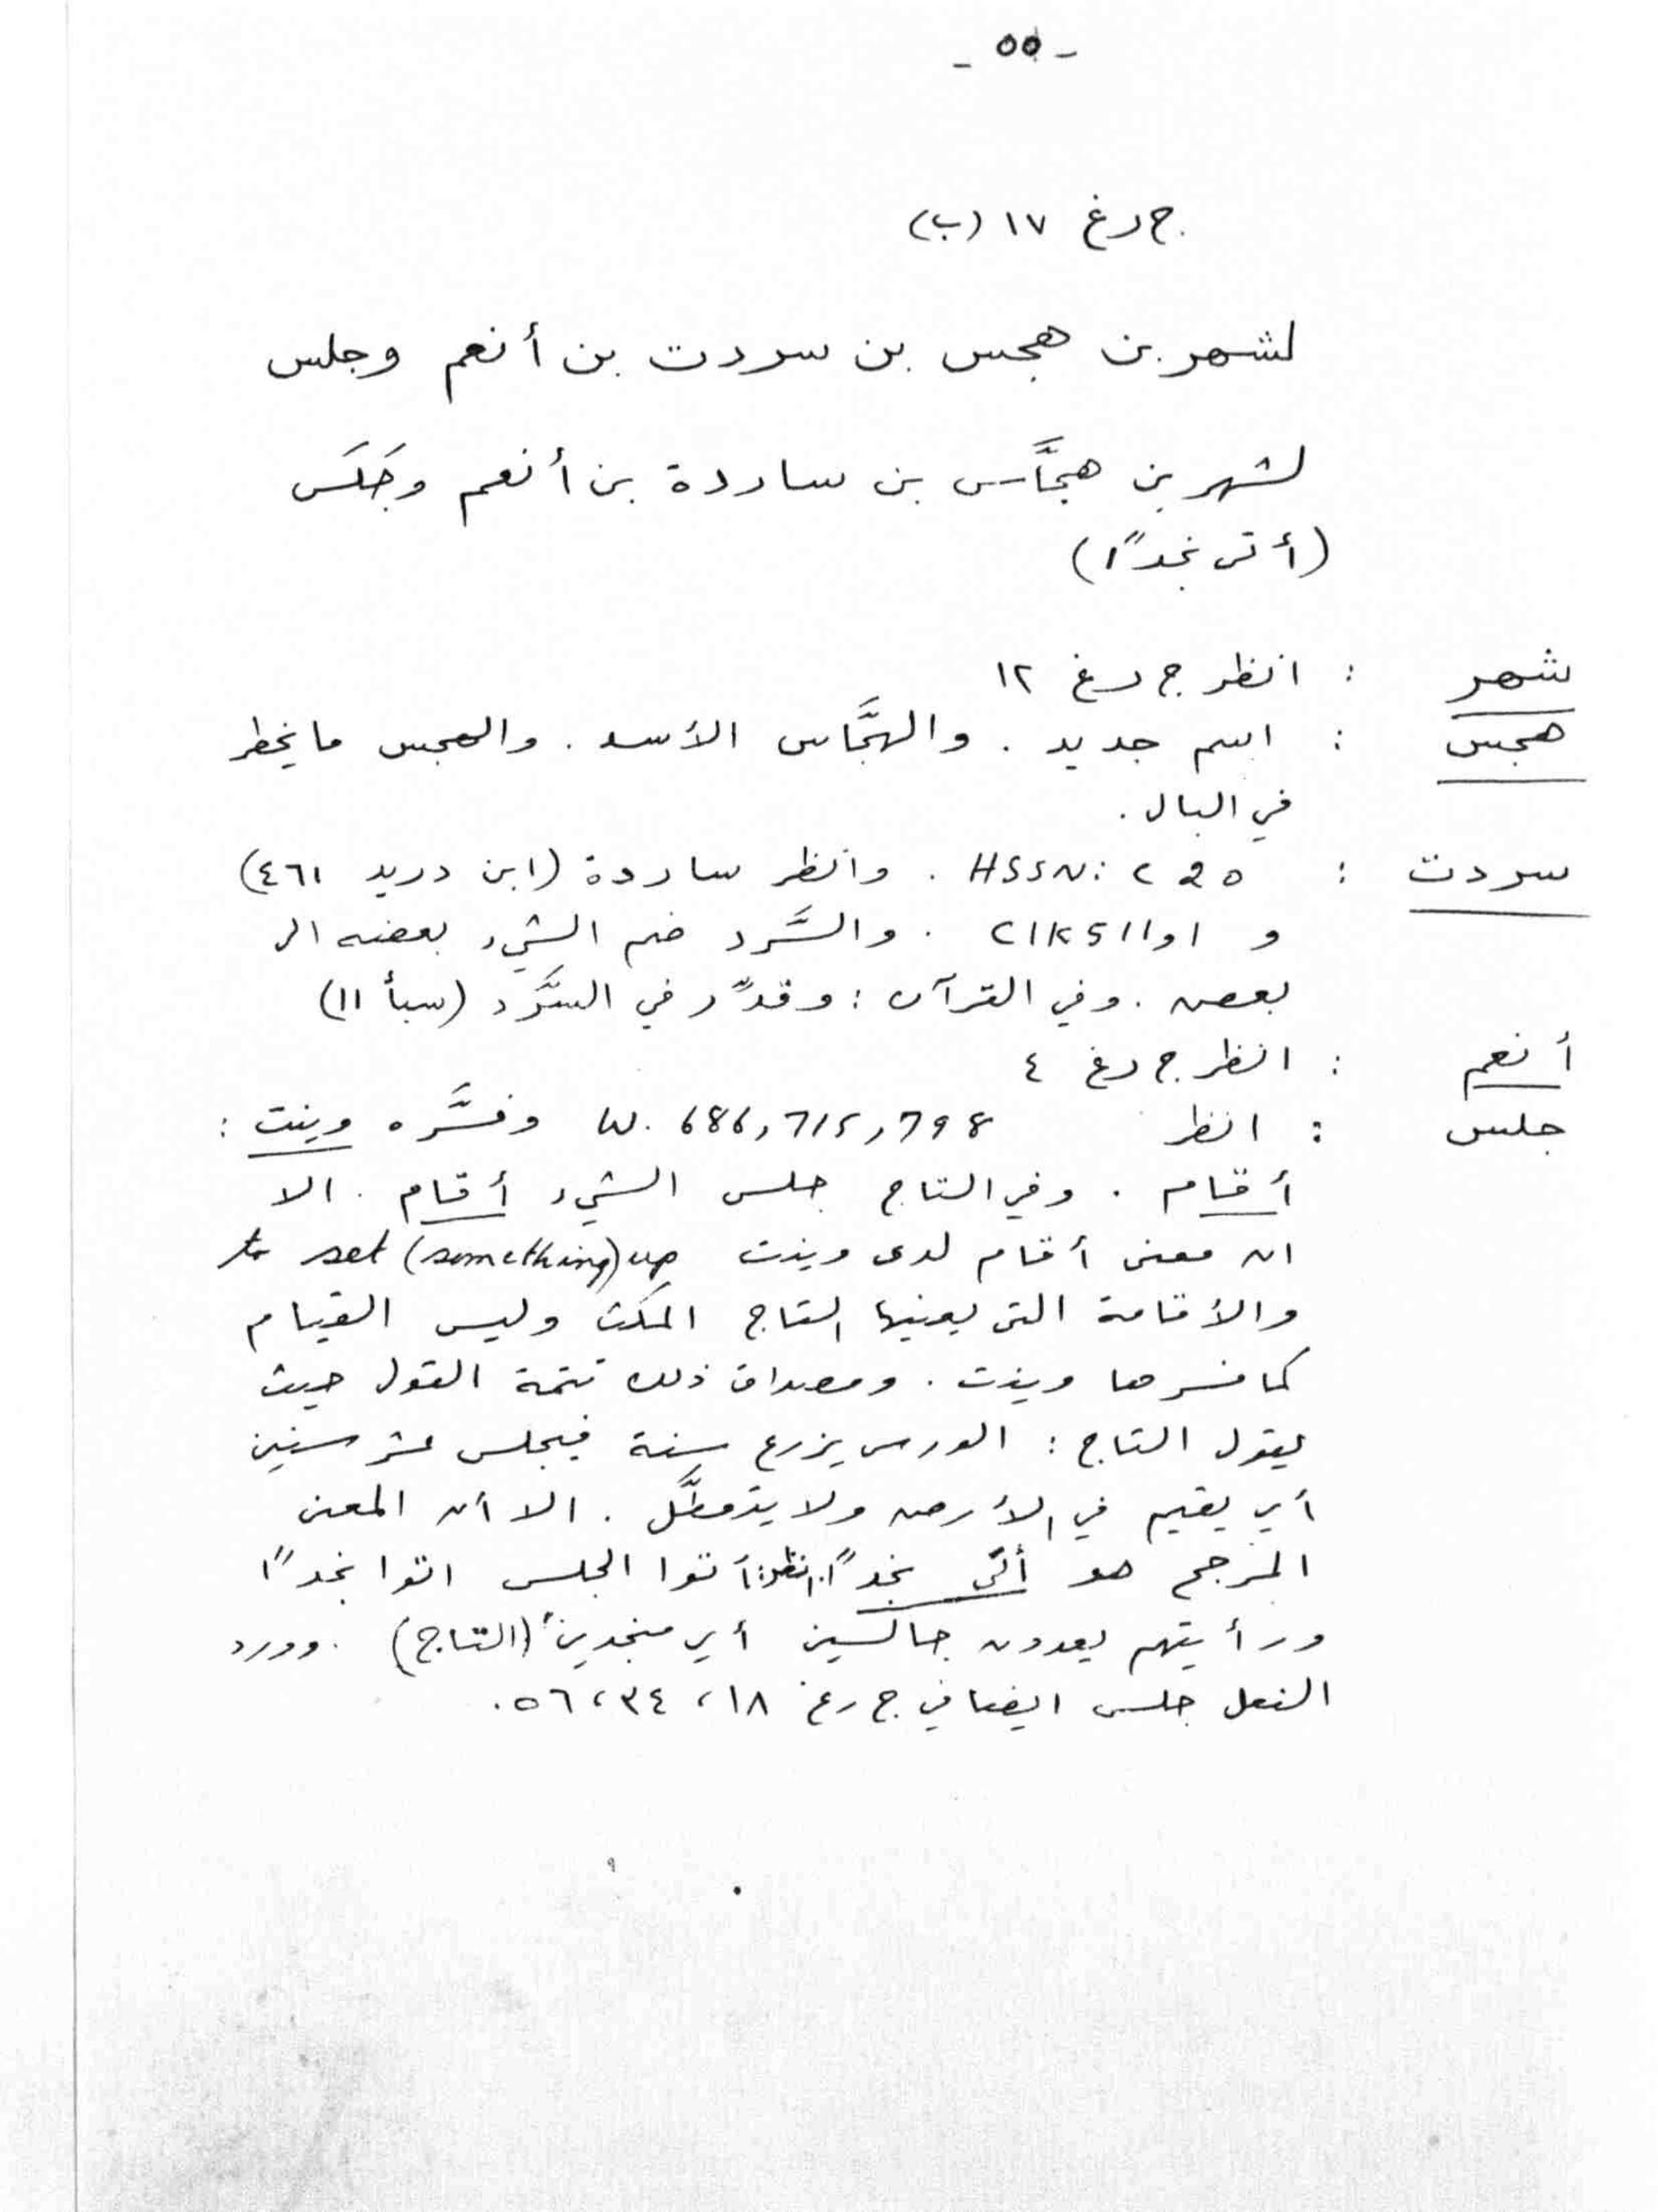 - ٥٥ -
ج رغ ١٧ (ب)
لشهر بن هجس بن سردت بن أنعم وجلس
لشهر بن هجَّاس بن ساردة بن أنعم وجَلَس
(أتى نجدًا)
شهر : انظر ج رغ ١٢
هجس : اسم جديد . والهجَّاس الأسد . والهجس ما يخطر
في البال .
سردت : HSSN: . وانظر ساردة (ابن دريد ٤٦١)
و . والسَّرد ضم الشيء بعضه الى
بعض . وفي القرآن : وقدِّر في السَّرد (سبأ ١١)
أنعم : انظر ج رغ ٤
جلس : انظر W. 686, 715, 798 وفسَّره وينت :
أقام . وفي التاج جلس الشيء أقام . الا
ان معنى أقام لدى وينت to set (something) up
والأقامة التى يعنيها التاج المكث وليس القيام
كما فسرها وينت . ومصداق ذلك تتمة القول حيث
يقول التاج : الورس يزرع سنة فيجلس عشر سنين
أي يقيم في الأرض ولا يتعطَّل . الا أن المعنى
المرجح هو أتى نجدًا. انظر: أتوا الجلس اتوا نجدًا
ورأيتهم يعدون جالسين أي منجدين (التاج) . وورد
الفعل جلس ايضا في ج رغ ١٨ ، ٣٤ ، ٥٦ .